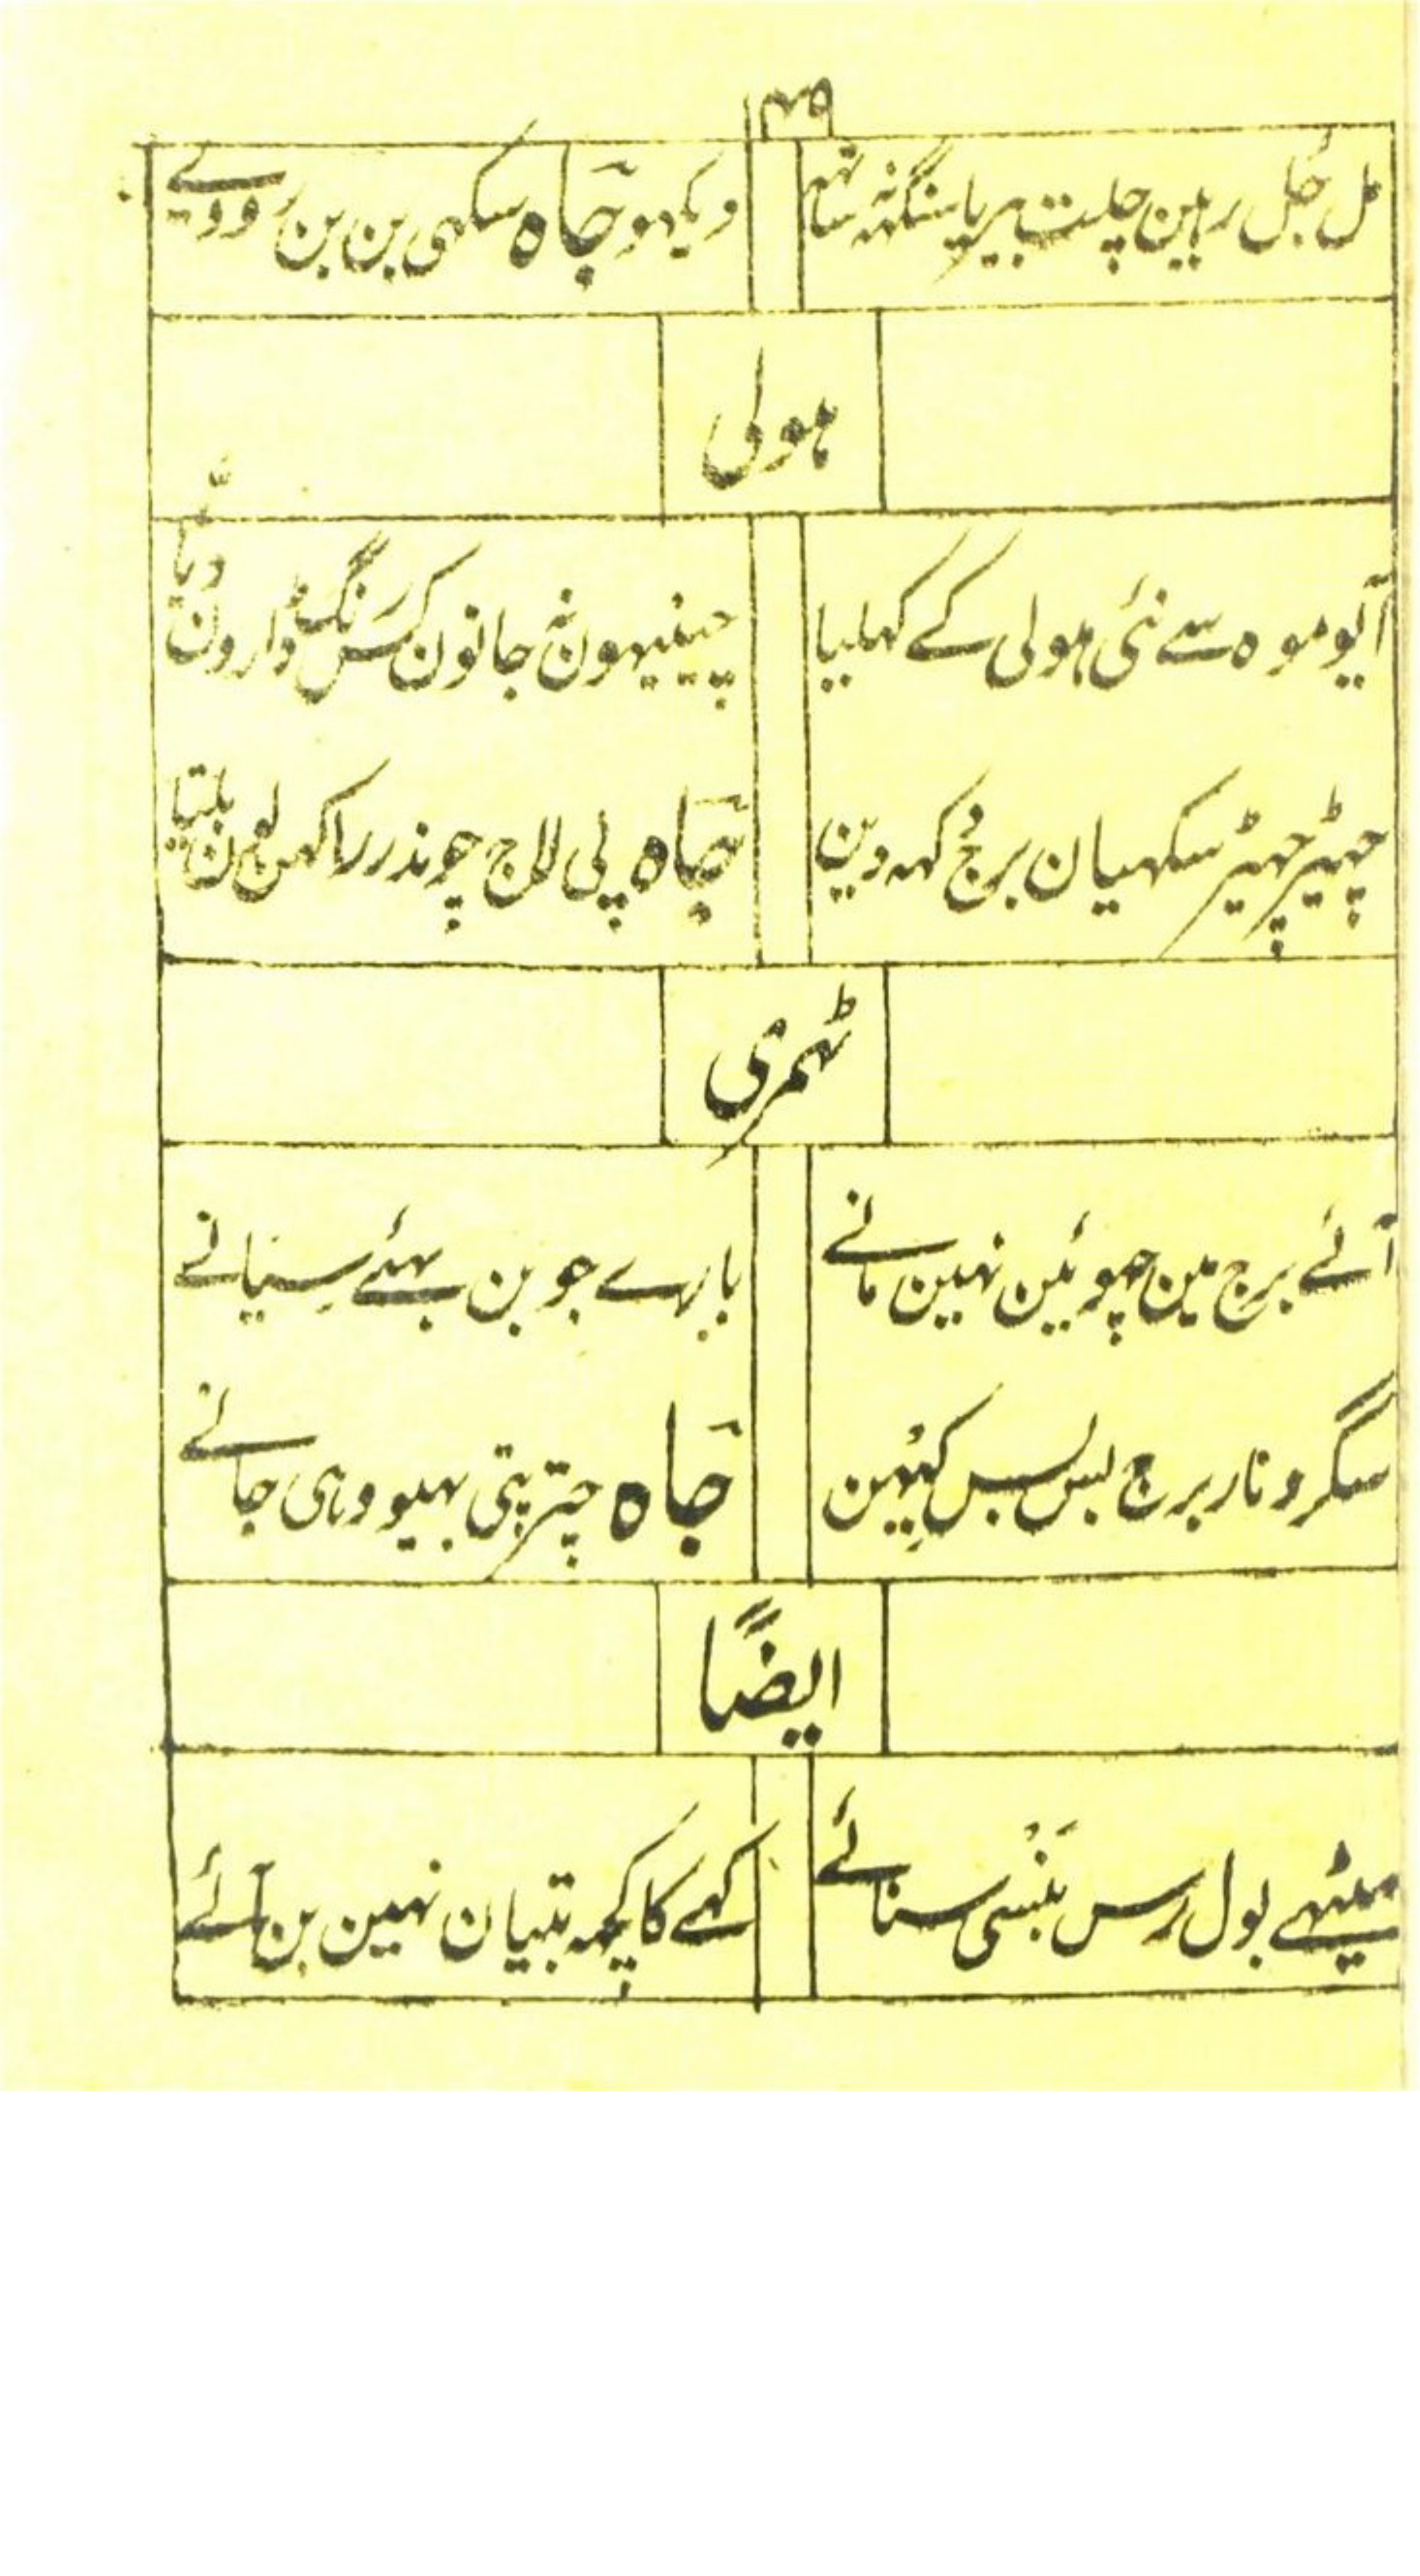 ۱۴۹
مل جل رہین چلت بیریا سنگھہ ساتھہ دیکھو جاہ سکھی بن بن رووے
ہولی
آیو موہ سے نئی ہولی کے کھلیا چینہیون نہ جانون کس رنگ ڈارون دیا
چھیڑ چھیڑ سکھیان برج کہہ دین جاہ پی لاج چوندر راکھن لون بلیّا
ٹھمری
آئے برج مین چھوئین نہین مانے بارہے جوبن بھئے سیانے
سگرو نار برج بس بس کیہین جاہ چترپتی بھیو وہی جانے
ایضًا
میٹھے بول رس بَنْسی سنائے کہے کا کچھہ بتیان نہین بن آئے